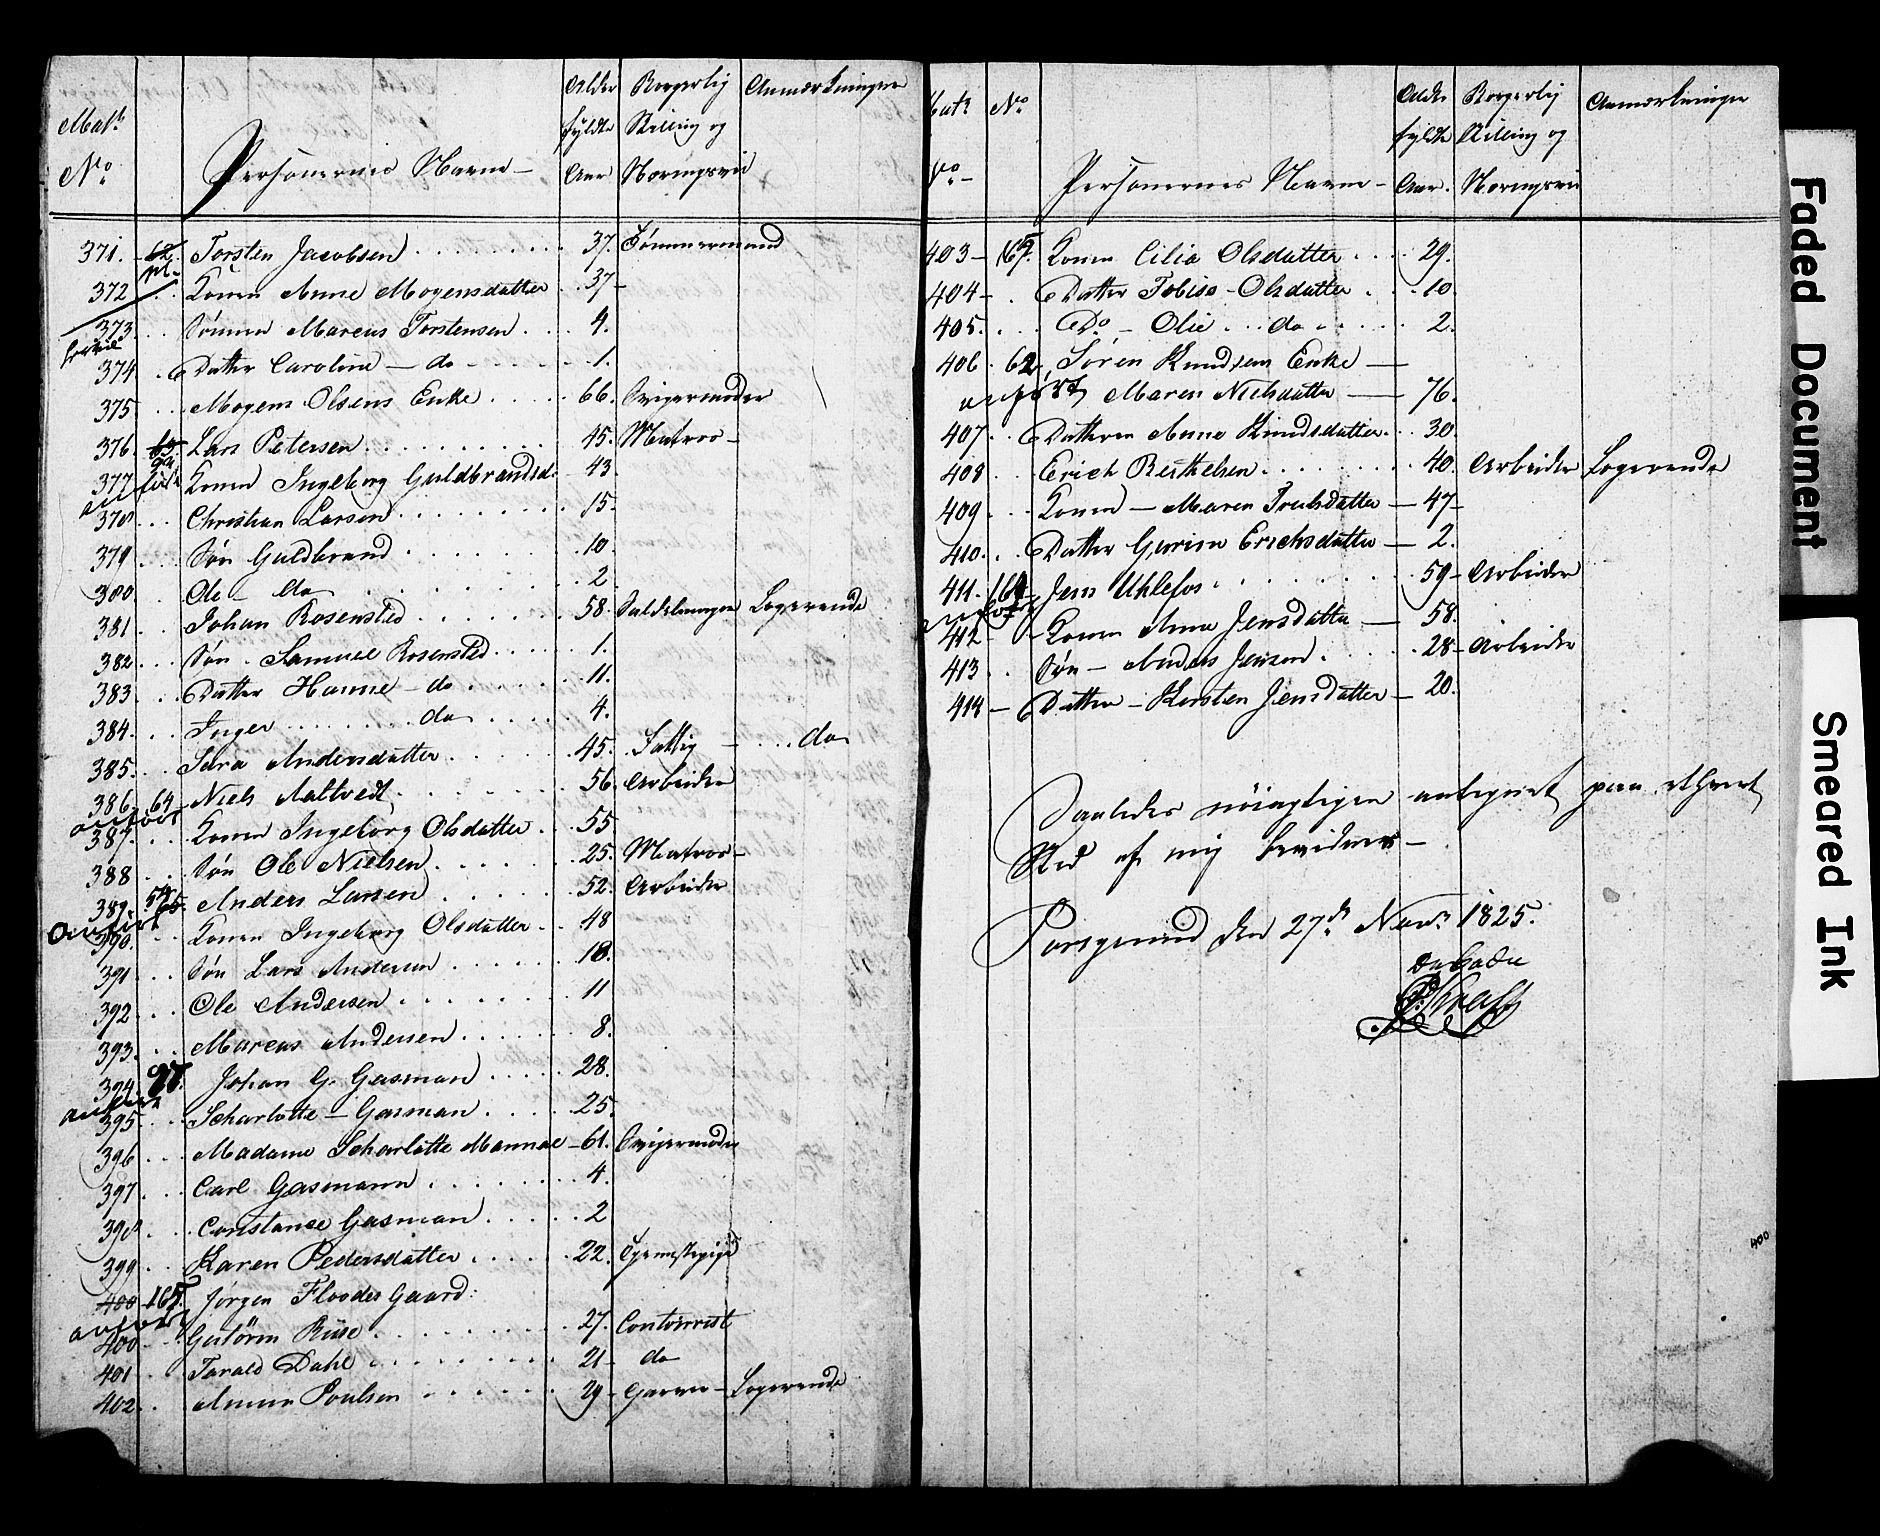 Matr
No
Personernes Navne
Alder fyldte Aar
Borgerlig Stilling og Næringsvei
Anmærkninger
371. 62. Torsten Jacobsen 37. Tømmermand
372 Konen Anne Mogensdatter 37
373 Sønnen Marcus Torstensen 4.
374 Datter Caroline do 1.
375 Mogens Olsens Enke 66. Svigermoder
376 63. Lars Petersen 45. Matros
377 Konen Ingeborg Guldbrandsd. 43
378 Christian Larsen 15
379 Søn Guldbrand 10.
380 Ole do 2
381 Johan Rosensted 58. Logerende
382 Søn Samuel Rosensted 1.
383 Datter Hanne do 11.
384 Inger do 4.
385. Sara Andersdatter 45. Fattig do
386 64 Niels Aaltvedt 56. Arbeider
anført
387. Konen Ingeborg Olsdatter 55
388 Søn Ole Nielsen 25. Matros
389. 65. Anders Larsen 52. Arbeider
Anført
390. Konen Ingeborg Olsdatter 48
391 Søn Lars Andersen 18.
392 Ole Andersen 11
393. Marcus Andersen 8.
394 Johan G. Gasman 28.
anført
395 Scharlotte Gasman 25.
396 Madame Scharlotte 61. Svigermoder
397 Carl Gasmann 4.
398 Constance Gasman 2
399 Karen Pedersdatter 22. Tjenestepige
400 165. Jørgen Flodes Gaard:
anført
400 Riise 27. Contoirist
401 Tarald Dahl 21 do
402 Poulsen 29 Logerende
Matr No
No
Personernes Navne
Alder fyldte Aar.
Borgerlig Stilling og Næringsvei
Anmærkninger
403 167. Konen Cilia Olsdatter 29.
404 Datter Tobise Olsdatter 10
405. Do Olie do 2.
406 62 Søren Knudsens Enke
anført Maren Nielsdatter 76.
407 Datteren Anne Knudsdatter 30.
408 Erich Berthelsen 40. Arbeider Logerende
409 Konen Maren Trulsdatter 47
410. Datter Erichsdatter 2.
411. 164 Jens Uhlefos 59 Arbeider
anført
412 Konen Anne Jensdatter 58.
413 Søn Anders Jensen 28 Arbeider
414 Datter Kirsten Jensdatter 20.
Saaledes nøiagtigen antegnet paa ethvert
Sted af mig bevidnes
Porsgrund den 27de Novr 1825.
400
Faded Document
Smeared Ink